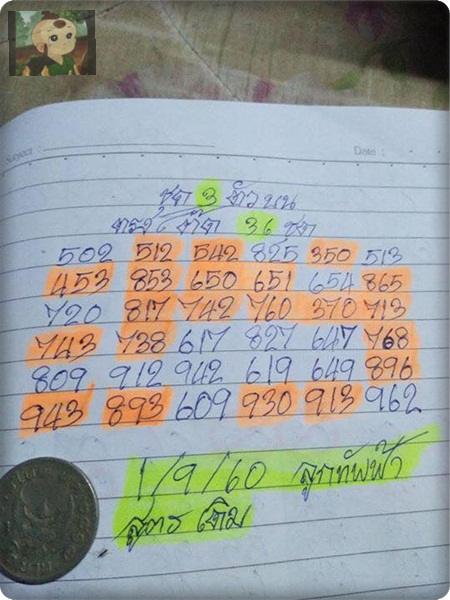 Subject : Date :
ชุด 3 ตัวบน
ตรง/โต๊ด 36 ชุด
502 512 542 825 350 513
453 853 650 651 654 865
720 817 742 760 370 713
743 738 617 827 647 768
809 912 942 619 649 896
943 893 609 930 913 962
1/9/60 ลูกทัพฟ้า
สูตรเดิม